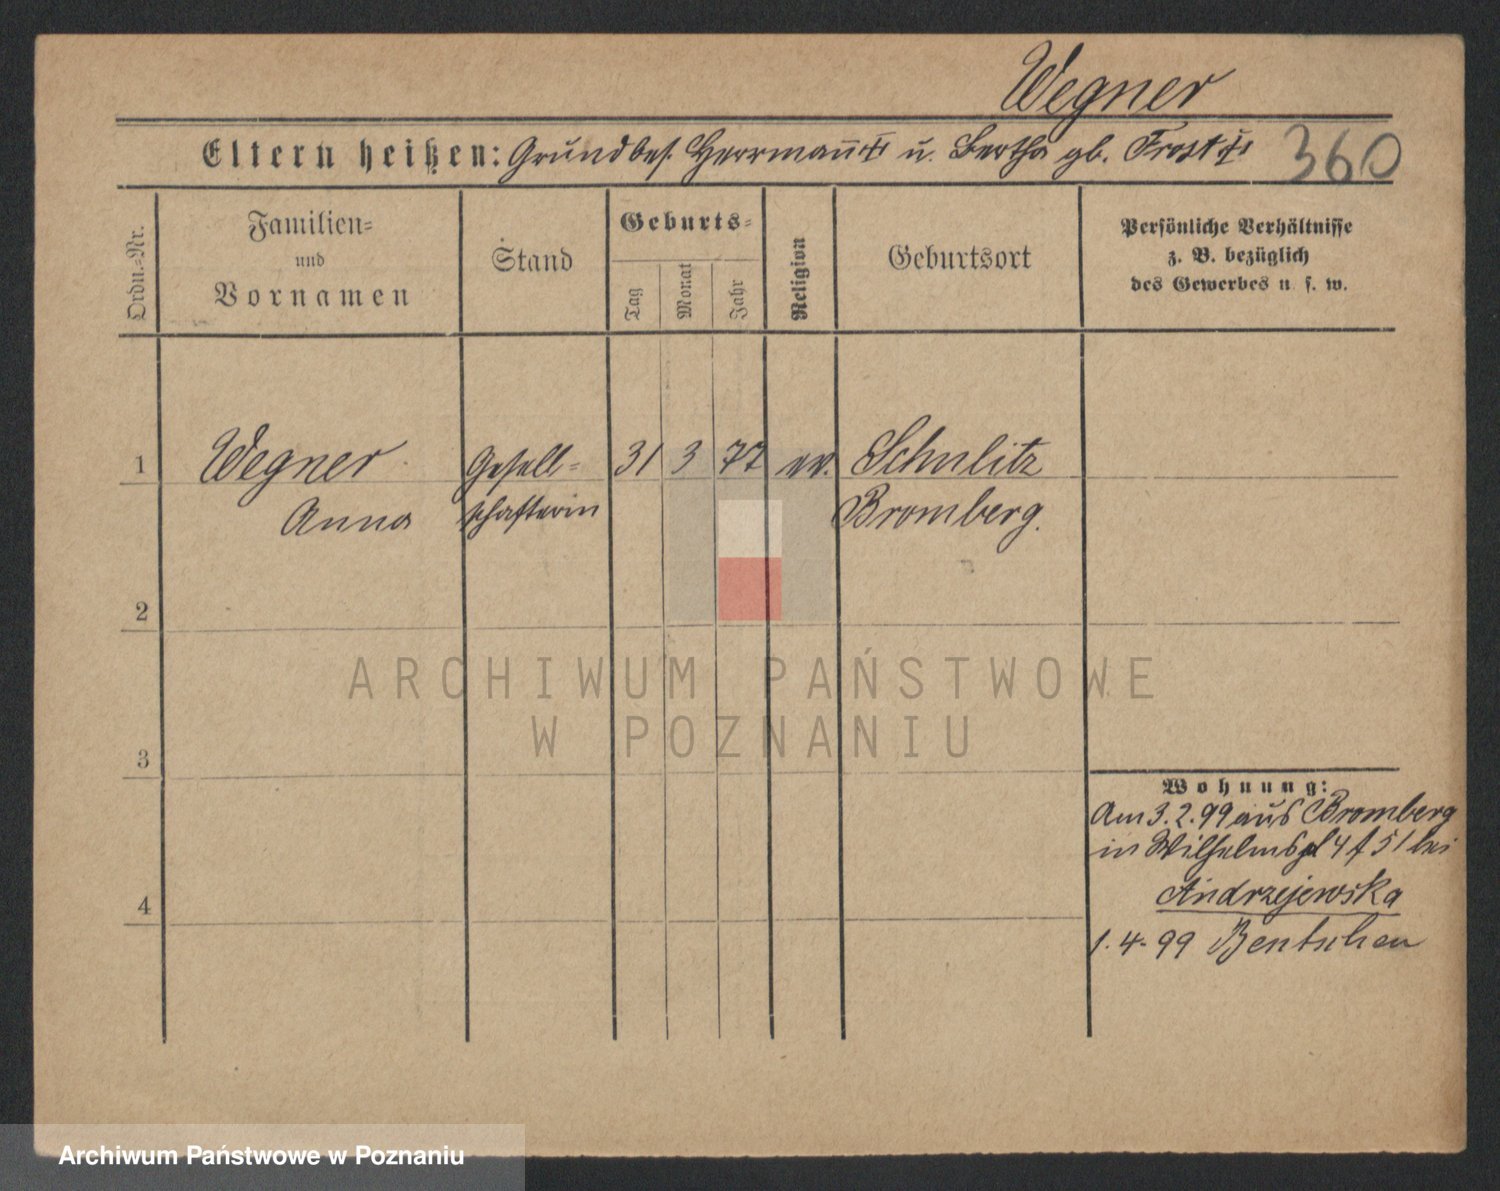 Wegner
Eltern heißen: Grundbes. Herrmann † u. Bertha gb. Frost †
360
Ordn.-Nr.
Familien-
und
Vornamen
Stand
Geburts-
Tag
Monat
Jahr
Religion
Geburtsort
Persönliche Verhältnisse
z. B. bezüglich
des Gewerbes u. s. w.
1 Wegner Gesell- 31 3 77 ev. Schulitz
Anna schafterin Bromberg.
2
ARCHIWUM PAŃSTWOWE
W POZNANIU
3
Wohnung:
Am 3.2.99 aus Bromberg
in Wilhelmspl 4 f 51 bei
Andrzejewska
4
1.4.99 Bentschen
Archiwum Państwowe w Poznaniu